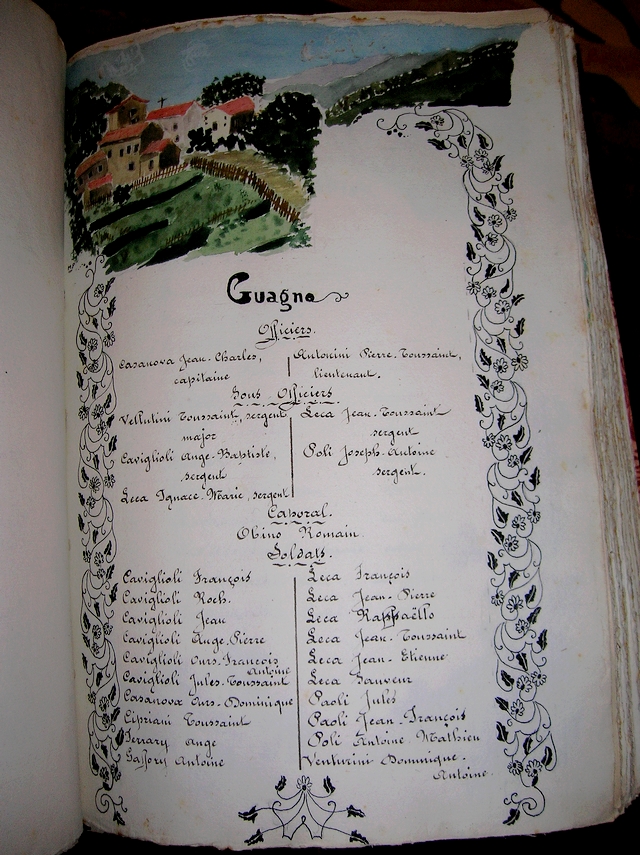 Guagno
Officiers.
Casanova Jean-Charles,
capitaine
Antonini Pierre-Toussaint,
lieutenant.
Sous Officiers.
Vellutini Toussaint, sergent
major
Caviglioli Ange-Baptiste,
sergent
Leca Ignace-Marie, sergent
Leca Jean-Toussaint
sergent
Poli Joseph-Antoine
sergent.
Caporal.
Obino Romain.
Soldats.
Caviglioli François
Caviglioli Roch.
Caviglioli Jean
Caviglioli Ange-Pierre
Caviglioli Ours-François
Antoine
Caviglioli Jules-Toussaint
Casanova Ours-Dominique
Cipriani Toussaint
Ferrary Ange
Gaffory Antoine
Leca François
Leca Jean-Pierre
Leca Raphaëllo
Leca Jean-Toussaint
Leca Jean-Etienne
Leca Sauveur
Paoli Jules
Paoli Jean-François
Poli Antoine-Mathieu
Venturini Dominique-
Antoine.